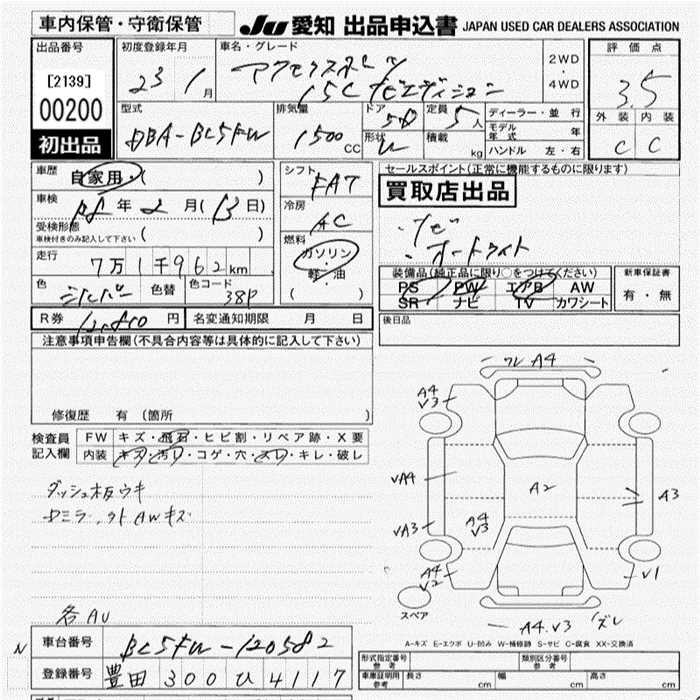 車内保管・守衛保管
JU 愛知 出品申込書 JAPAN USED CAR DEALERS ASSOCIATION
出品番号
[2139]
00200
初出品
初度登録年月
23 1月
車名・グレード
アクセラスポーツ
15C ナビエディション
2WD
・
4WD
評価点
3.5
外装 内装
C C
型式
DBA-BL5FW
排気量
1500 CC
ドア
5D
形状
定員
5人
積載
kg
ディーラー・並行
モデル年式 年
ハンドル 左・右
車歴
自家用・( )
車検
年 2月(13日)
受検形態
車検付きのみ記入して下さい ( )
走行
7万1千962km
色
シルバー
色替
色コード
38P
シフト
FAT
冷房
AC
燃料
ガソリン
・
軽・油
( )
セールスポイント(正常に機能するものに限ります)
買取店出品
・ナビ
・オートライト
装備品(純正品に限り○をつけてください)
PS PW エアB AW
SR ナビ TV カワシート
新車保証書
有・無
R券 円
名変通知期限 月 日
後日品
注意事項申告欄(不具合内容等は具体的に記入して下さい)
修復歴 有 (箇所 )
検査員
記入欄
FW キズ・飛石・ヒビ割・リペア跡・X要
内装 キズ・汚れ・コゲ・穴・スレ・キレ・破レ
ダッシュ板ウキ
各AU
ワレ A4
A4
V3
VA4
A2
A3
VA3
A4
V3
A4
V2
V1
スペア
A4.V3 ズレ
A-キズ E-エクボ U-凹み W-補修跡 S-サビ C-腐食 XX-交換済
N
車台番号
BL5FW-120582
登録番号
豊田 300 ひ 4117
型式指定番号
参考
類別区分番号
参考
車庫証明用
参考
長さ cm 幅 cm 高さ cm